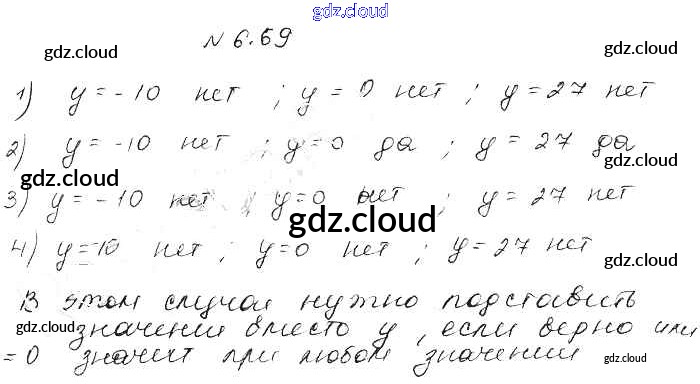 gdz.cloud
№ 6.69
gdz.cloud gdz.cloud
1) y = -10 нет ; y = 0 нет ; y = 27 нет
gdz.cloud gdz.cloud
2) y = -10 нет ; y = 0 да ; y = 27 да
gdz.cloud
3) y = -10 нет ; y = 0 нет ; y = 27 нет
gdz.cloud
4) y = 10 нет ; y = 0 нет ; y = 27 нет
gdz.cloud
В этом случаи нужно подставить
gdz.cloud gdz.cloud
значении вместо y, если верно или
= 0 значит при любом значении
gdz.cloud gdz.cloud